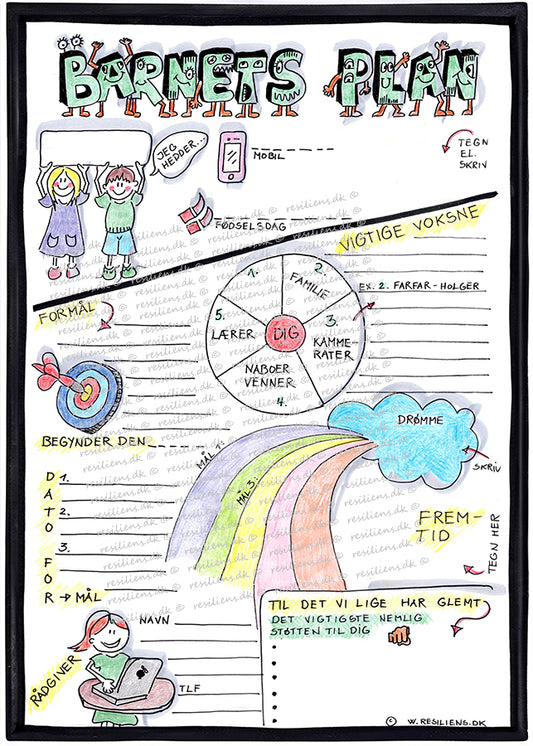 BARNETS PLAN
JEG
HEDDER...
MOBIL
TEGN
EL.
SKRIV
FØDSELSDAG
VIGTIGE VOKSNE
FORMÅL
EX. 2. FARFAR - HOLGER
1.
2.
FAMILIE
3.
KAMME-
RATER
NABOER
VENNER
4.
5.
LÆRER
DIG
BEGYNDER DEN
DATO FOR
1.
2.
3.
→ MÅL
MÅL 1:
MÅL 3:
DRØMME
SKRIV
FREM-
TID
TEGN HER
RÅDGIVER
NAVN
TLF
TIL DET VI LIGE HAR GLEMT
DET VIGTIGSTE NEMLIG
STØTTEN TIL DIG
© W.RESILIENS.DK
resiliens.dk ©